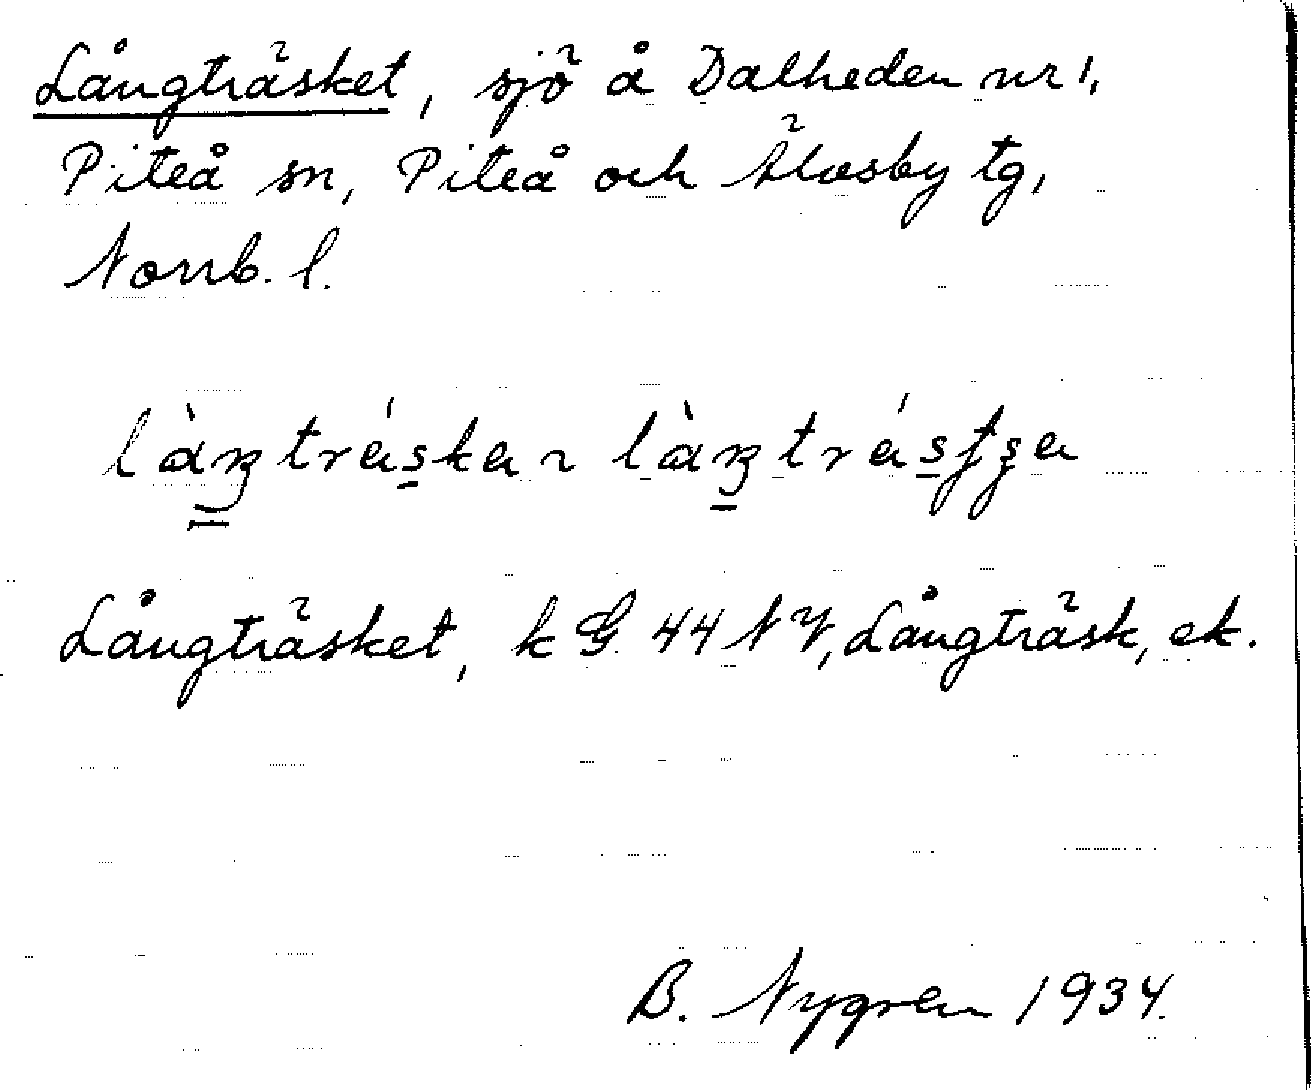 Långträsket, sjö å Dalheden nr 1,
Piteå sn, Piteå och Älvsby tg,
Norrb. l.
Långträsket, k G. 44 NV, Långträsk, ek.
B. Nygren 1934.